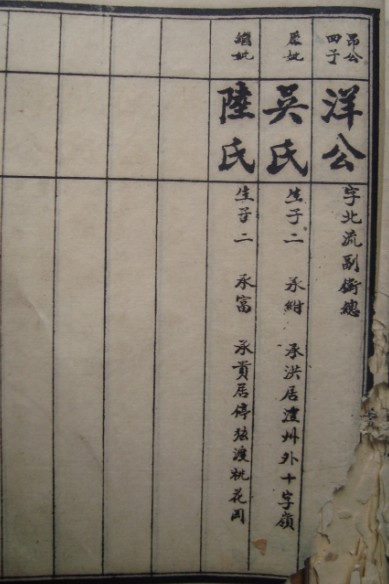 昂公四子
洋公
字北流副衛總
原妣
吳氏
生子二 承紺 承洪居澧州外十字嶺
繼妣
陸氏
生子二 承富 承貴居停弦渡桃花岡